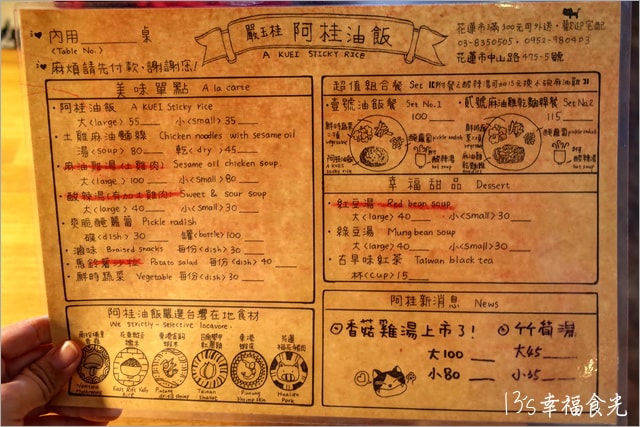 內用 桌
<Table No.>
麻煩請先付款，謝謝您！
嚴玉桂 阿桂油飯
A KUEI STICKY RICE
花蓮市滿300元可外送，歡迎宅配
03-8350505 · 0952-980903
花蓮市中山路475-5號
美味單點 A la carte
阿桂油飯 A KUEI Sticky rice
大<large> 55 小<small> 35
土雞麻油麵線 Chicken noodles with sesame oil
湯<soup> 80 乾<dry> 45
麻油雞湯(土雞肉) Sesame oil chicken soup
大<large> 100 小<small> 80
酸辣湯(有加土雞肉) Sweet & sour soup
大<large> 40 小<small> 30
爽脆醃蘿蔔 Pickle radish
碟<dish> 30 罐<bottle> 100
滷味 Braised snacks 每份<dish> 30
馬鈴薯沙拉 Potato salad 每份<dish> 40
鮮時蔬菜 Vegetable 每份<dish> 30
超值組合餐 Set
壹號油飯餐 Set No.1
100
貳號麻油雞乾麵線餐 Set No.2
115
幸福甜品 Dessert
紅豆湯 Red bean soup
大<large> 40 小<small> 30
綠豆湯 Mung bean soup
大<large> 40 小<small> 30
古早味紅茶 Taiwan black tea
杯<cup> 15
阿桂油飯嚴選台灣在地食材
We strictly-selective locavore.
阿桂新消息 News
香菇雞湯上市了！
大100
小80
竹筍湯
大45
小35
13's幸福食光